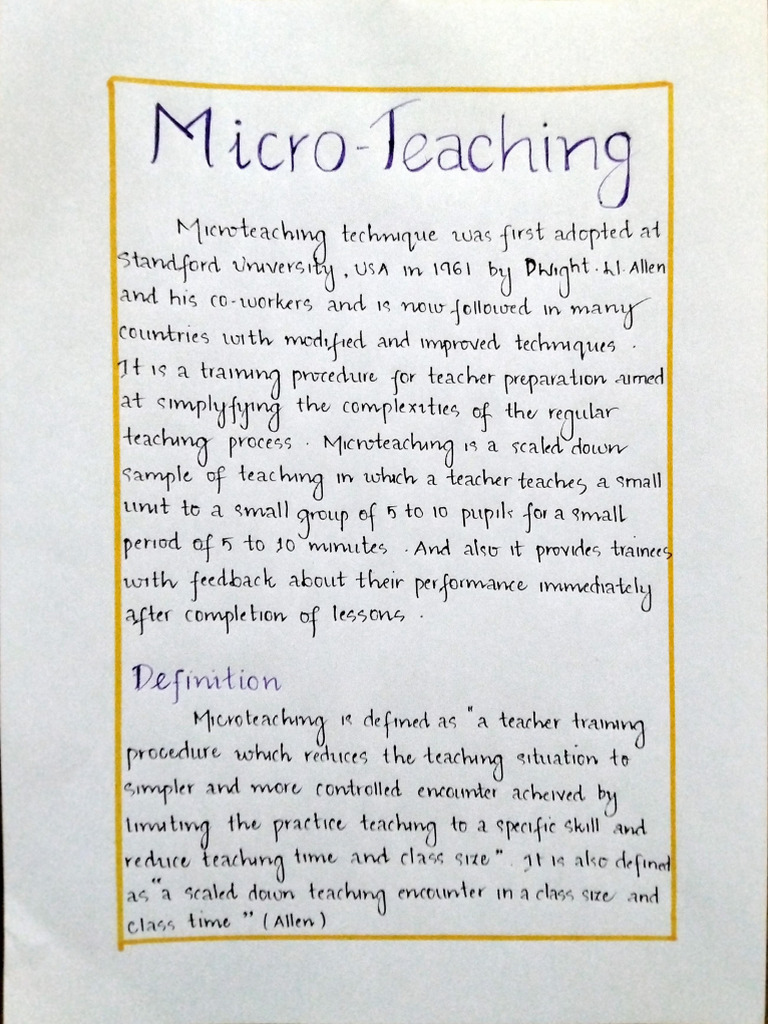 Micro-Teaching
Microteaching technique was first adopted at
Standford University, USA in 1961 by Dwight. W. Allen
and his co-workers and is now followed in many
countries with modified and improved techniques .
It is a training procedure for teacher preparation aimed
at simplyfying the complexities of the regular
teaching process . Microteaching is a scaled down
sample of teaching in which a teacher teaches a small
unit to a small group of 5 to 10 pupils for a small
period of 5 to 10 minutes . And also it provides trainees
with feedback about their performance immediately
after completion of lessons .
Definition
Microteaching is defined as "a teacher training
procedure which reduces the teaching situation to
simpler and more controlled encounter acheived by
limiting the practice teaching to a specific skill and
reduce teaching time and class size". It is also defined
as "a scaled down teaching encounter in a class size and
class time " (Allen)